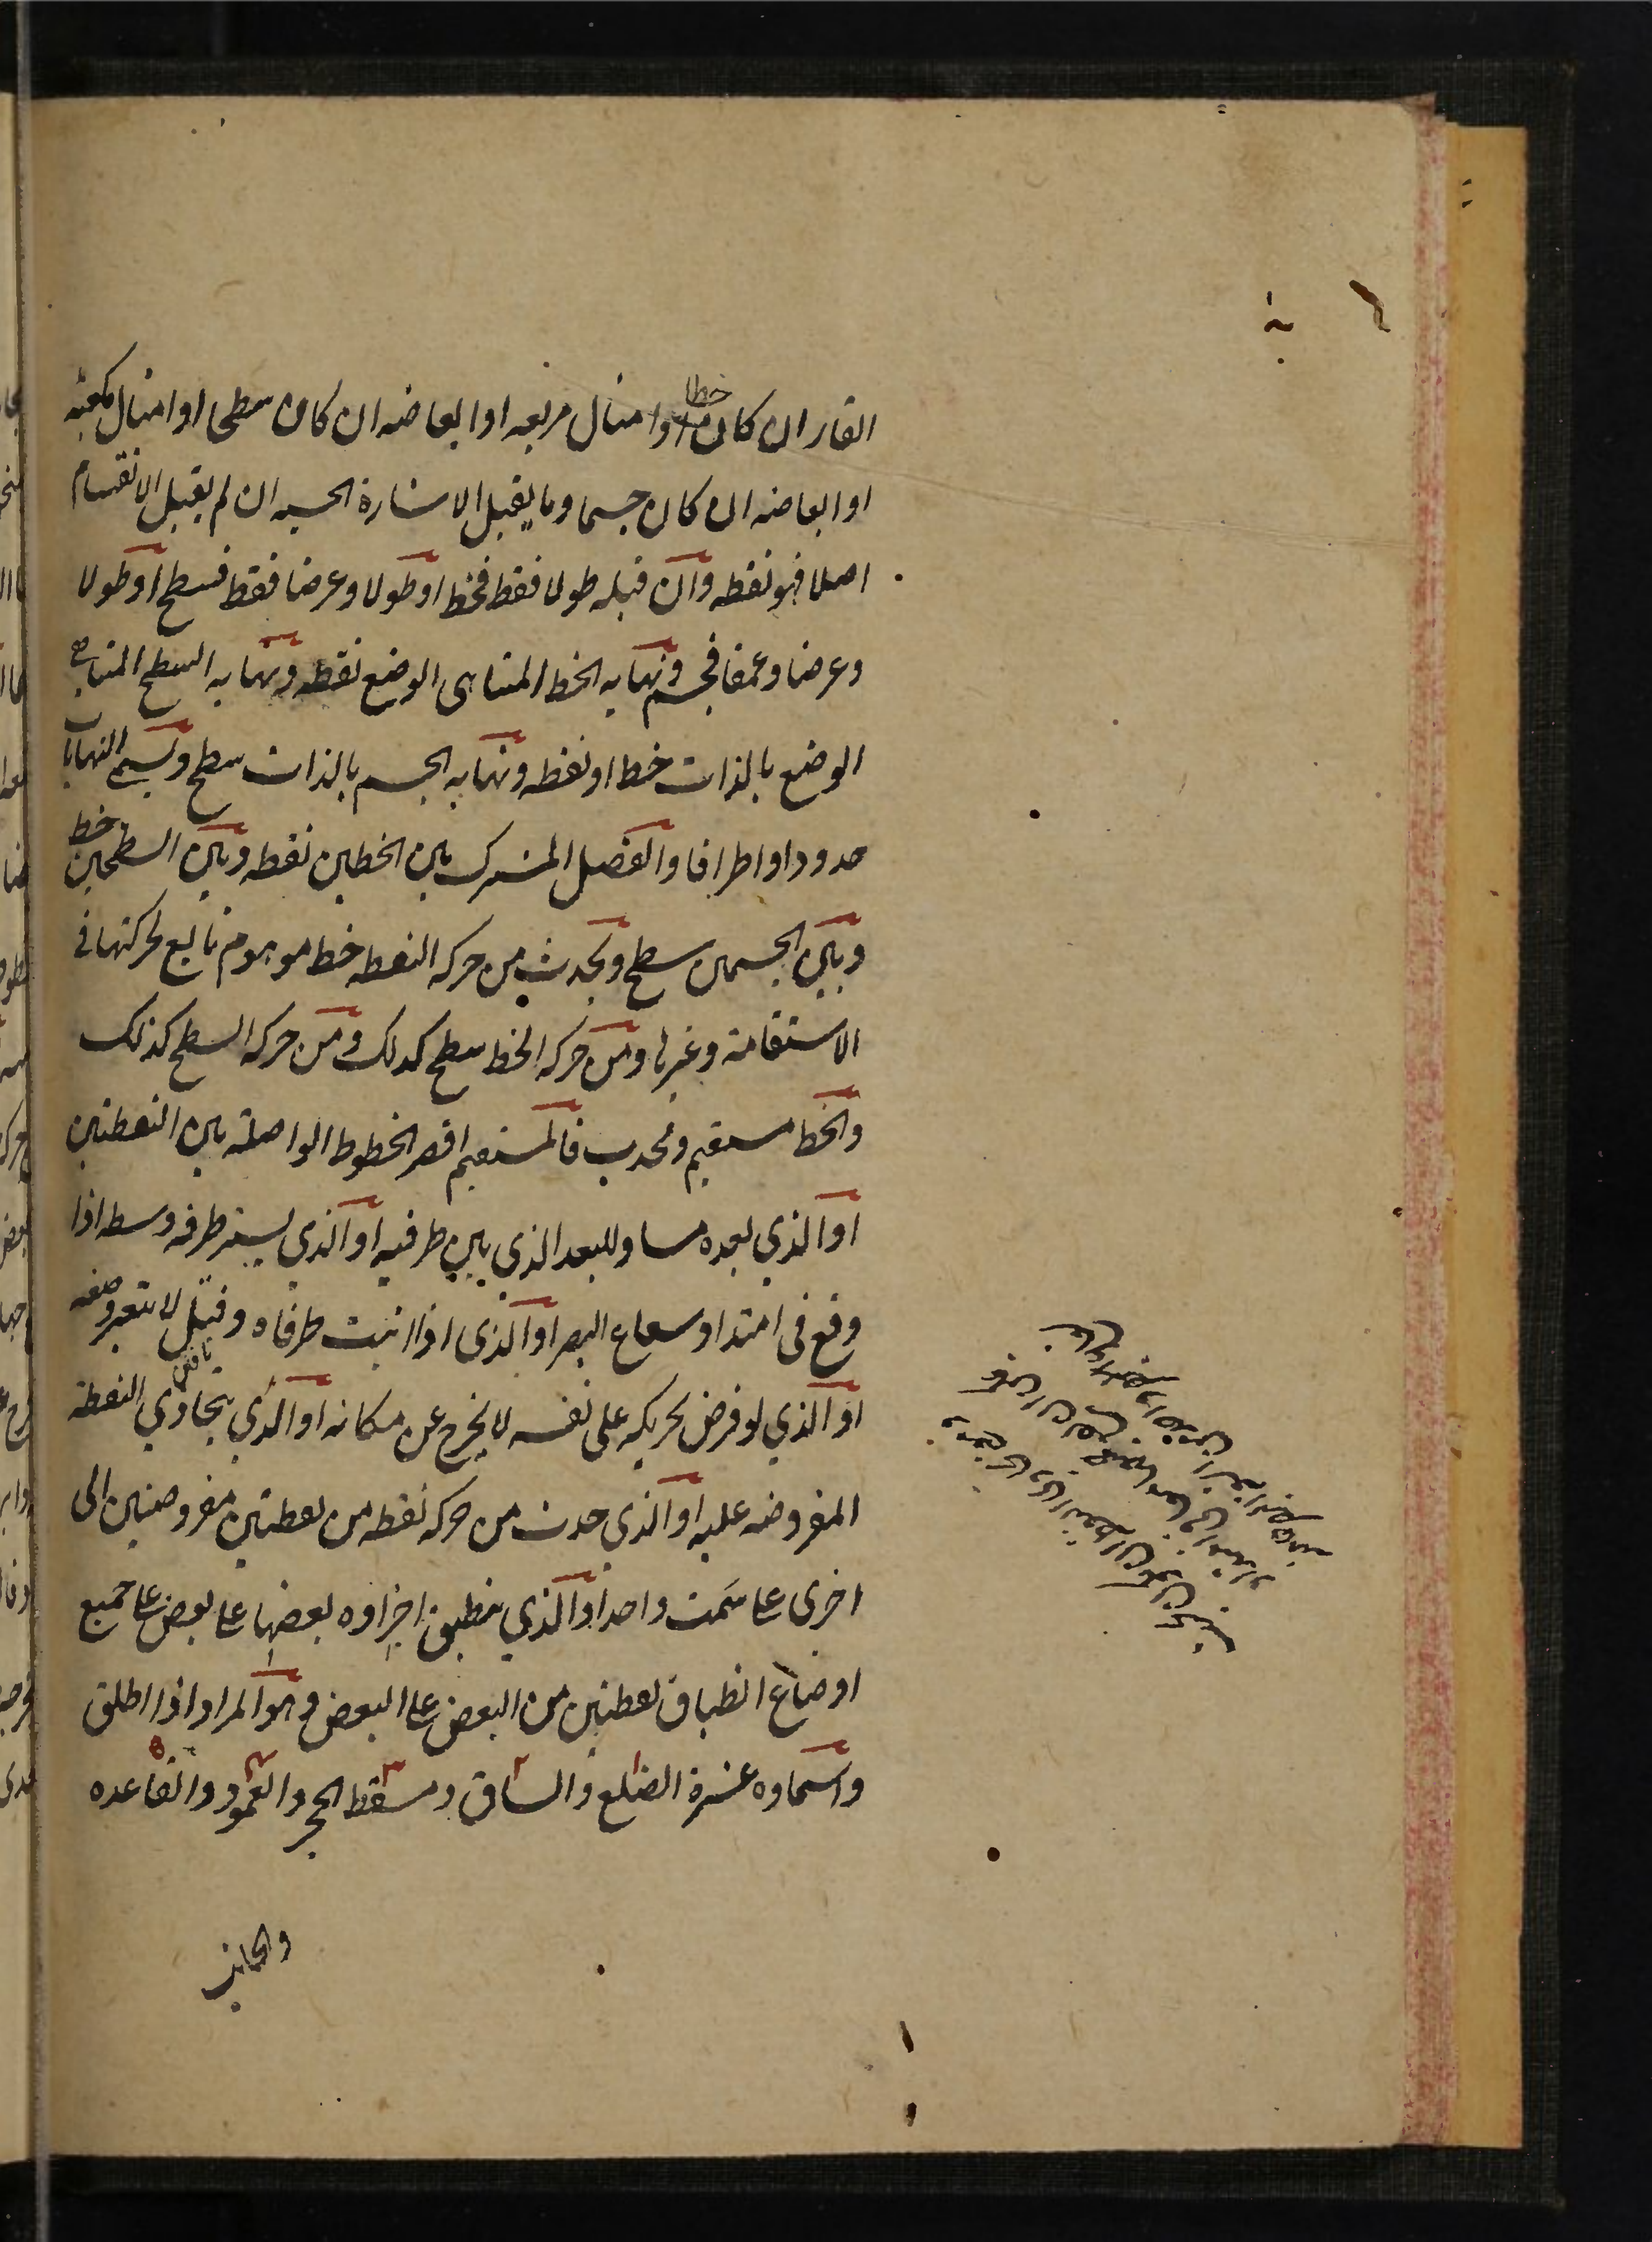 القار ان كان خطا او امثال مربعه او ابعاضه ان كان سطحا او امثال مكعبه
او ابعاضه ان كان جسما وما يقبل الاشارة الحسيه ان لم يقبل الانقسام
اصلا فهو نقطه وان قبله طولا فقط فخط او طولا وعرضا فقط فسطح او طولا
وعرضا وعمقا فجسم ونهايه الخط المتناهى الوضع نقطه ونهايه السطح المتناهى
الوضع بالذات خط او نقطه ونهايه الجسم بالذات سطح وتسمى النهايات
حدودا واطرافا والفصل المشترك بين الخطين نقطه وبين السطحين خط
وبين الجسمين سطح ويحدث من حركه النقطه خط موهوم تابع لحركتها فى
الاستقامة وغيرها ومن حركه الخط سطح كذلك ومن حركه السطح كذلك
والخط مستقيم ومحدب فالمستقيم اقصر الخطوط الواصلة بين النقطتين
او الذي بعده مساو للبعد الذي بين طرفيه او الذي يستر طرفه وسطه اذا
وقع فى امتداد شعاع البصر او الذى اذا اثبت طرفاه وفتل لا يتغير وضعه
او الذي لو فرض تحريكه على نفسه لا يخرج عن مكانه او الذي يتحاذي النقطة
المفروضه عليه او الذي حدث من حركه نقطه من نقطتين مفروضتين الى
اخرى على سمت واحد او الذي ينطبق اجزاوه بعضها على بعض على جميع
اوضاع انطباق نقطتين من البعض على البعض وهو المراد اذا اطلق
واسماوه عشرة الضلع والساق ومسقط الحجر والعمود والقاعده
والجانب